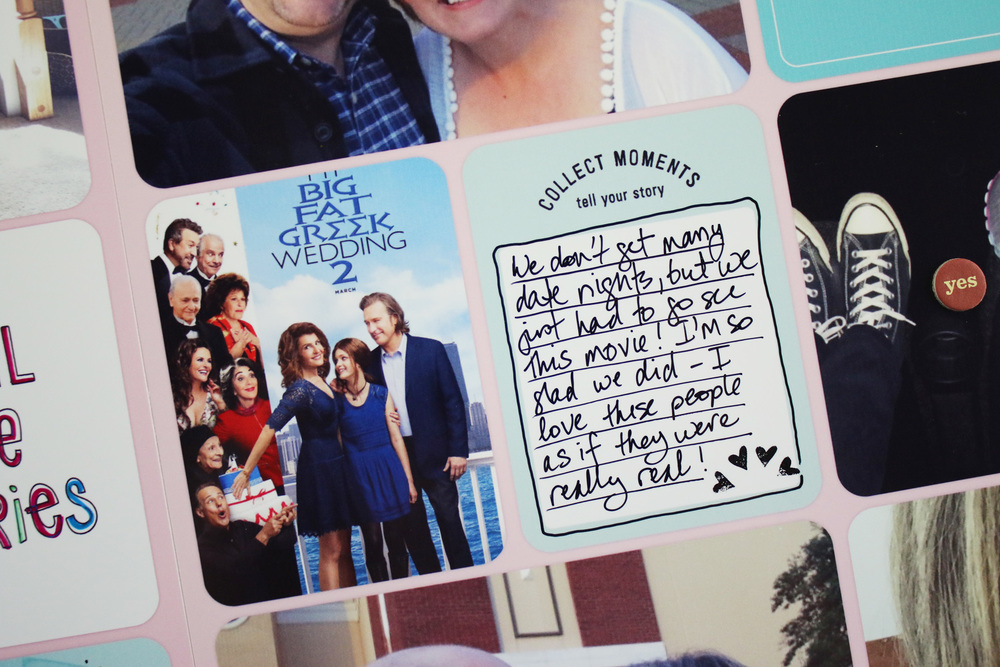 BIG
FAT
GREEK
WEDDING
2
MARCH
COLLECT MOMENTS
tell your story
We don't get many
date nights, but we
just had to go see
this movie! I'm so
glad we did - I
love these people
as if they were
really real!
yes